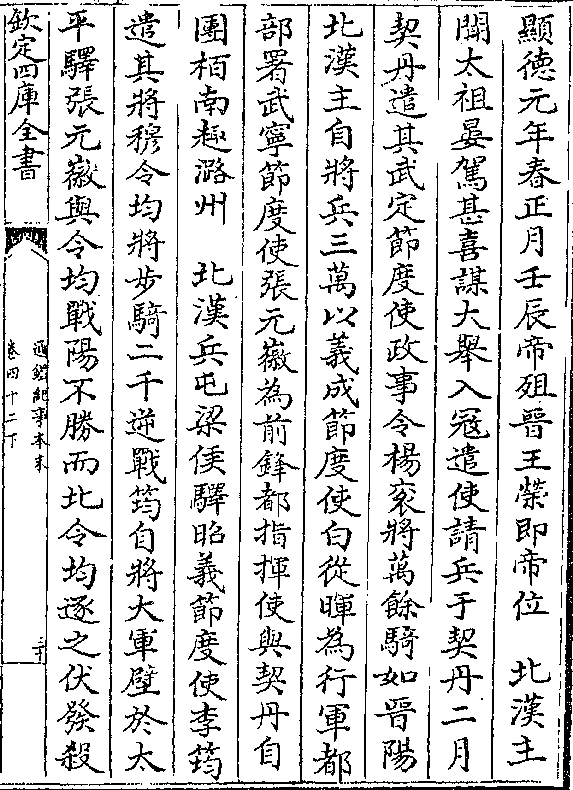 顯德元年春正月壬辰帝殂晉王榮即帝位　北漢主
聞太祖晏駕甚喜謀大舉入寇遣使請兵于契丹二月
契丹遣其武定節度使政事令楊衮將萬餘騎如晉陽
北漢主自將兵三萬以義成節度使白從暉為行軍都
部署武寧節度使張元徽為前鋒都指揮使與契丹自
團柏南趣潞州　北漢兵屯梁侯驛昭義節度使李筠
遣其將穆令均將步騎二千逆戰筠自將大軍壁於太
平驛張元徽與令均戰陽不勝而北令均逐之伏發殺
欽定四庫全書
通鑑紀事本末
卷四十二下
三十